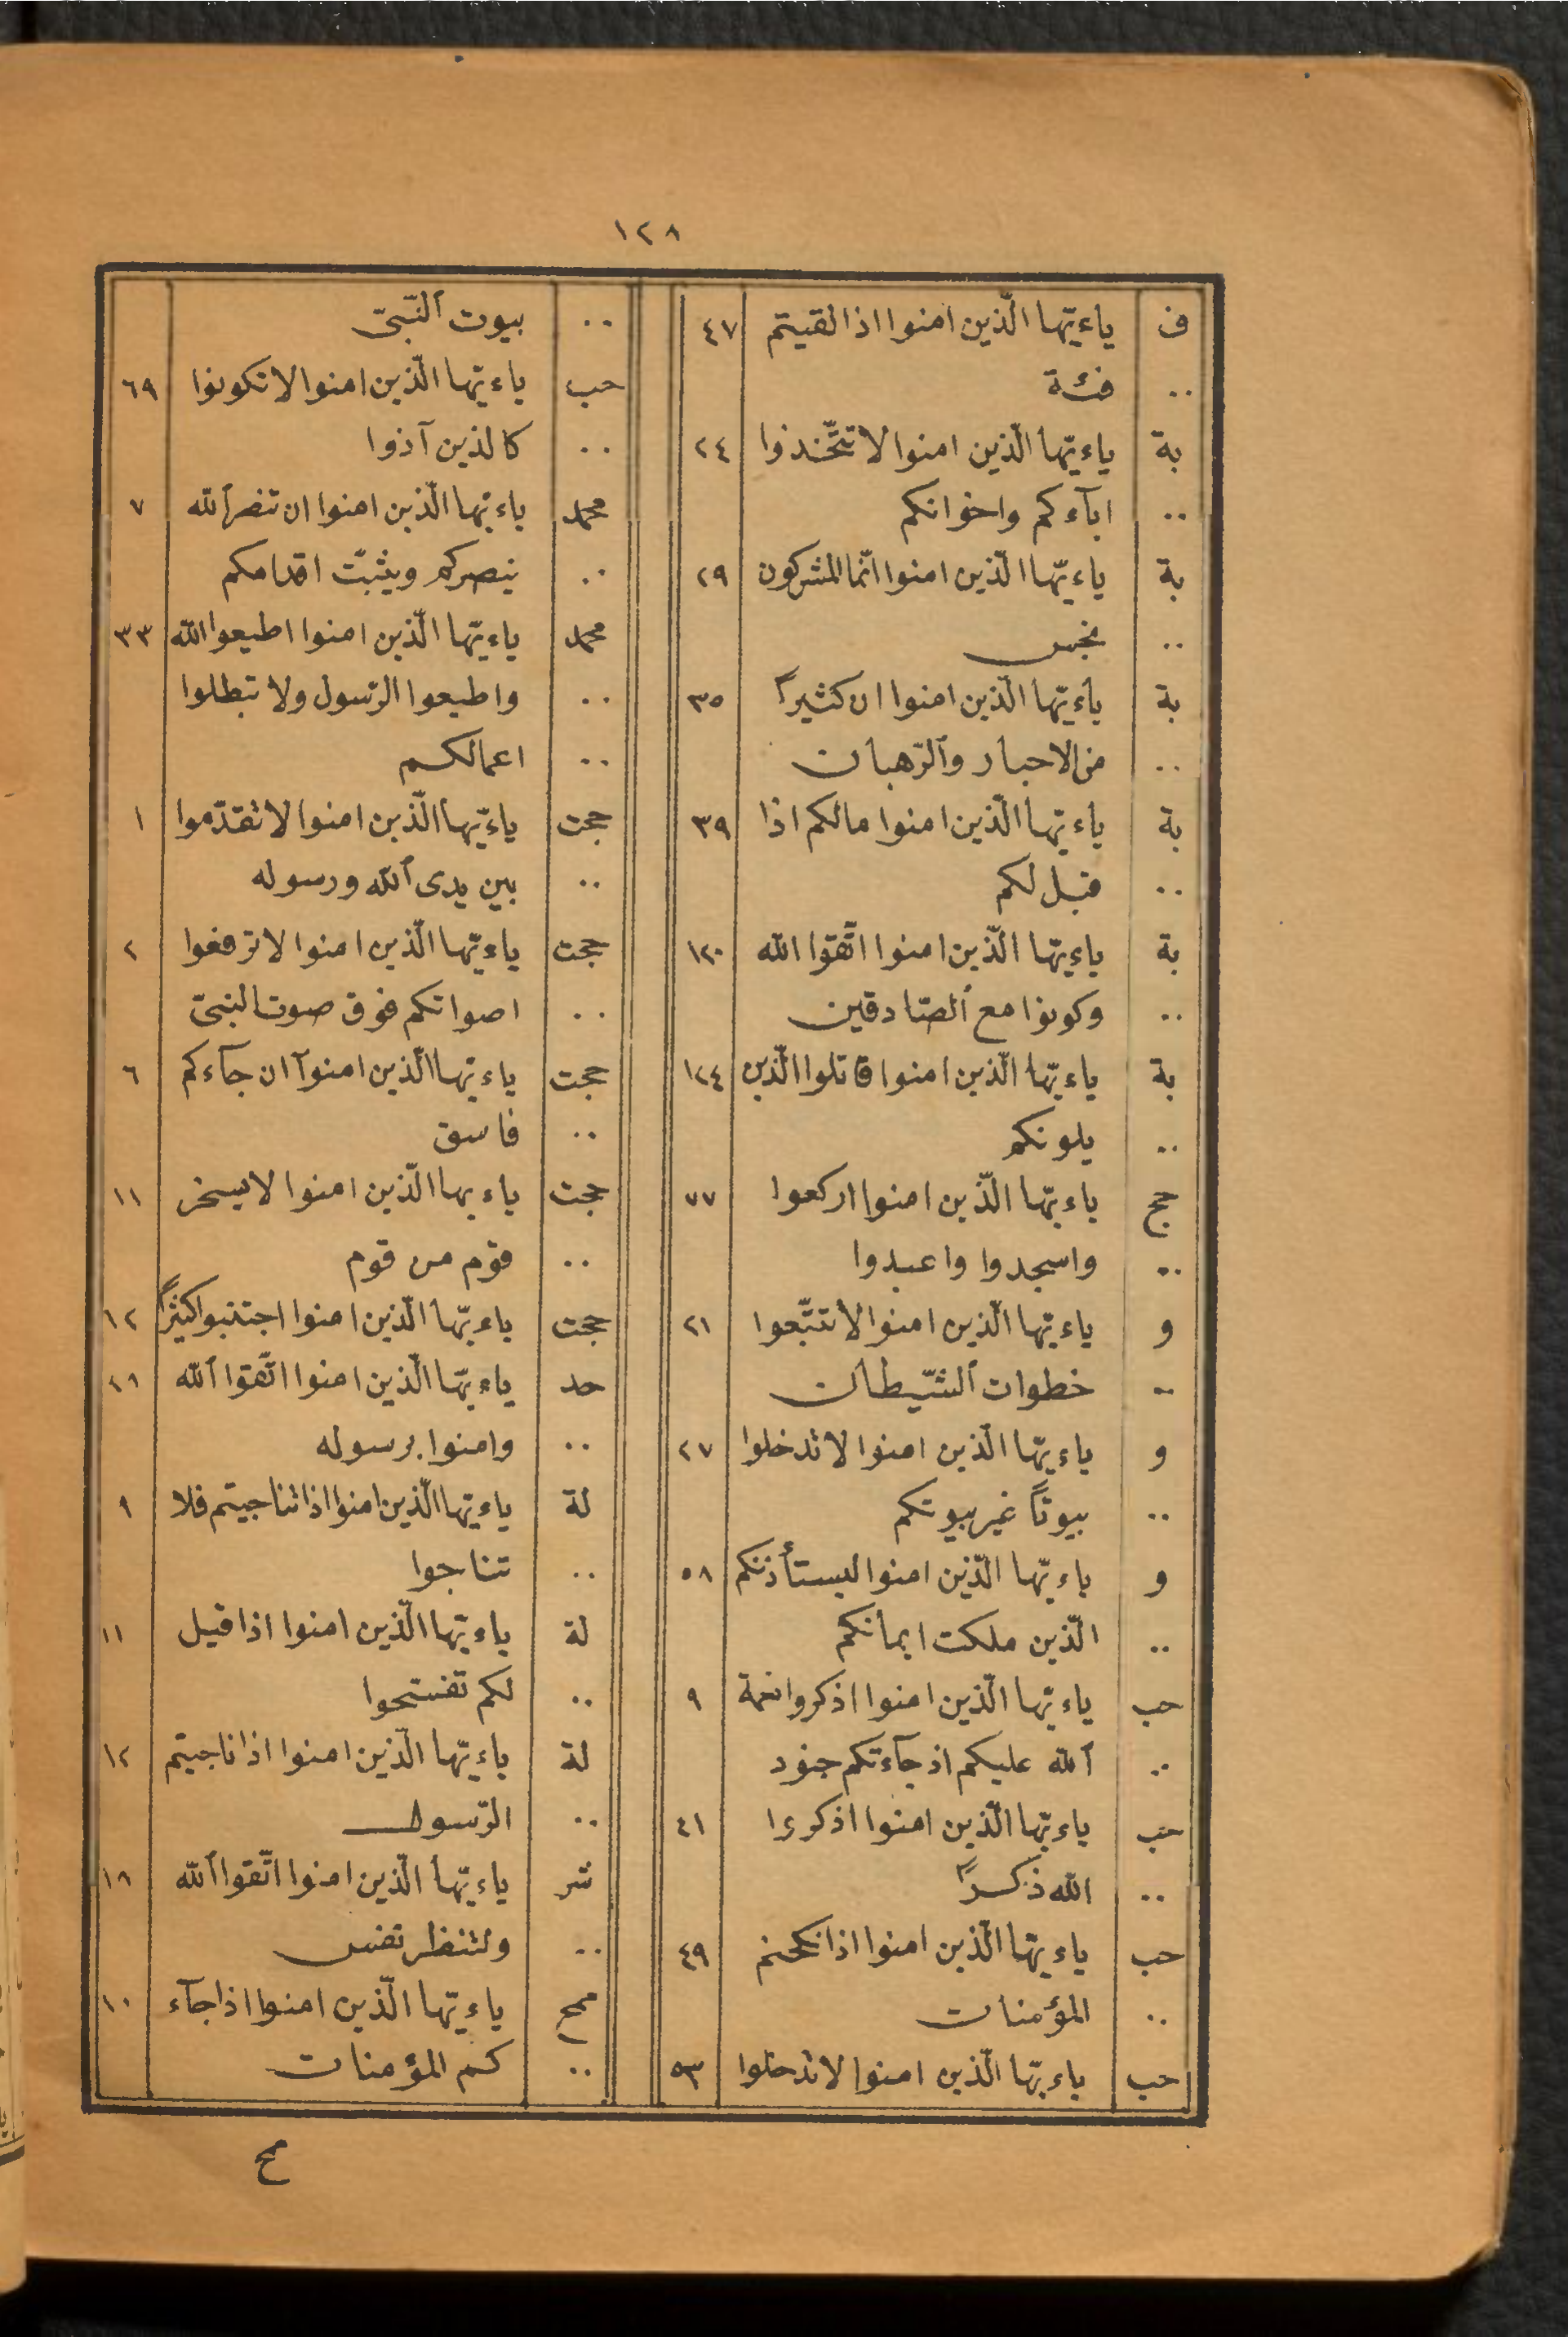 ١٢٨
ف ياءيّها الّذين امنوا اذا لقيتم ٤٧
.. فئة
بة ياءيّها الّذين امنوا لا تتّخذوا ٢٤
.. ابآءكم واخوانكم
بة ياءيّها الّذين امنوا انّما المشركون ٢٩
.. نجس
بة ياءيّها الّذين امنوا ان كثيراً ٣٥
.. من الاحبار وٱلرّهبان
بة ياءيّها الّذين امنوا مالكم اذا ٣٩
.. قيل لكم
بة ياءيّها الّذين امنوا اتّقوا الله ١٢٠
.. وكونوا مع ٱلصّادقين
بة ياءيّها الّذين امنوا قاتلوا الّذين ١٢٤
.. يلونكم
حج ياءيّها الّذين امنوا اركعوا ٧٧
.. واسجدوا واعبدوا
و ياءيّها الّذين امنوا لا تتّبعوا ٢١
.. خطوات ٱلشّيطان
و ياءيّها الّذين امنوا لا تدخلوا ٢٧
.. بيوتاً غير بيوتكم
و ياءيّها الّذين امنوا ليستأذنكم ٥٨
.. الّذين ملكت ايمانكم
حب ياءيّها الّذين امنوا اذكروا نعمة ٩
.. ٱلله عليكم اذ جآءتكم جنود
حب ياءيّها الّذين امنوا اذكروا ٤١
.. الله ذكراً
حب ياءيّها الّذين امنوا اذا نكحتم ٤٩
.. المؤمنات
حب ياءيّها الّذين امنوا لا تدخلوا ٥٣
.. بيوت ٱلنّبىّ
حب ياءيّها الّذين امنوا لا تكونوا ٦٩
.. كالذين آذوا
محمد ياءيّها الّذين امنوا ان تنصر ٱلله ٧
.. ينصركم ويثبّت اقدامكم
محمد ياءيّها الّذين امنوا اطيعوا الله ٣٣
.. واطيعوا الرّسول ولا تبطلوا
.. اعمالكم
حجت ياءيّها الّذين امنوا لا تقدّموا ١
.. بين يدى ٱلله ورسوله
حجت ياءيّها الّذين امنوا لا ترفعوا ٢
.. اصواتكم فوق صوت النبىّ
حجت ياءيّها الّذين امنوآ ان جآءكم ٦
.. فاسق
حجت ياءيها الّذين امنوا لا يسخر ١١
.. قوم من قوم
حجت ياءيّها الّذين امنوا اجتنبوا كثيراً ١٢
حد ياءيّها الّذين امنوا اتّقوا ٱلله ٢٨
.. وامنوا برسوله
لة ياءيّها الّذين امنوا اذا تناجيتم فلا ٩
.. تتناجوا
لة ياءيّها الّذين امنوا اذا قيل ١١
.. لكم تفسّحوا
لة ياءيّها الّذين امنوا اذا ناجيتم ١٢
.. الرّسول
شر ياءيّها الّذين امنوا اتّقوا ٱلله ١٨
.. ولتنظر نفس
مح ياءيّها الّذين امنوا اذا جآء ١٠
.. كم المؤمنات
مح